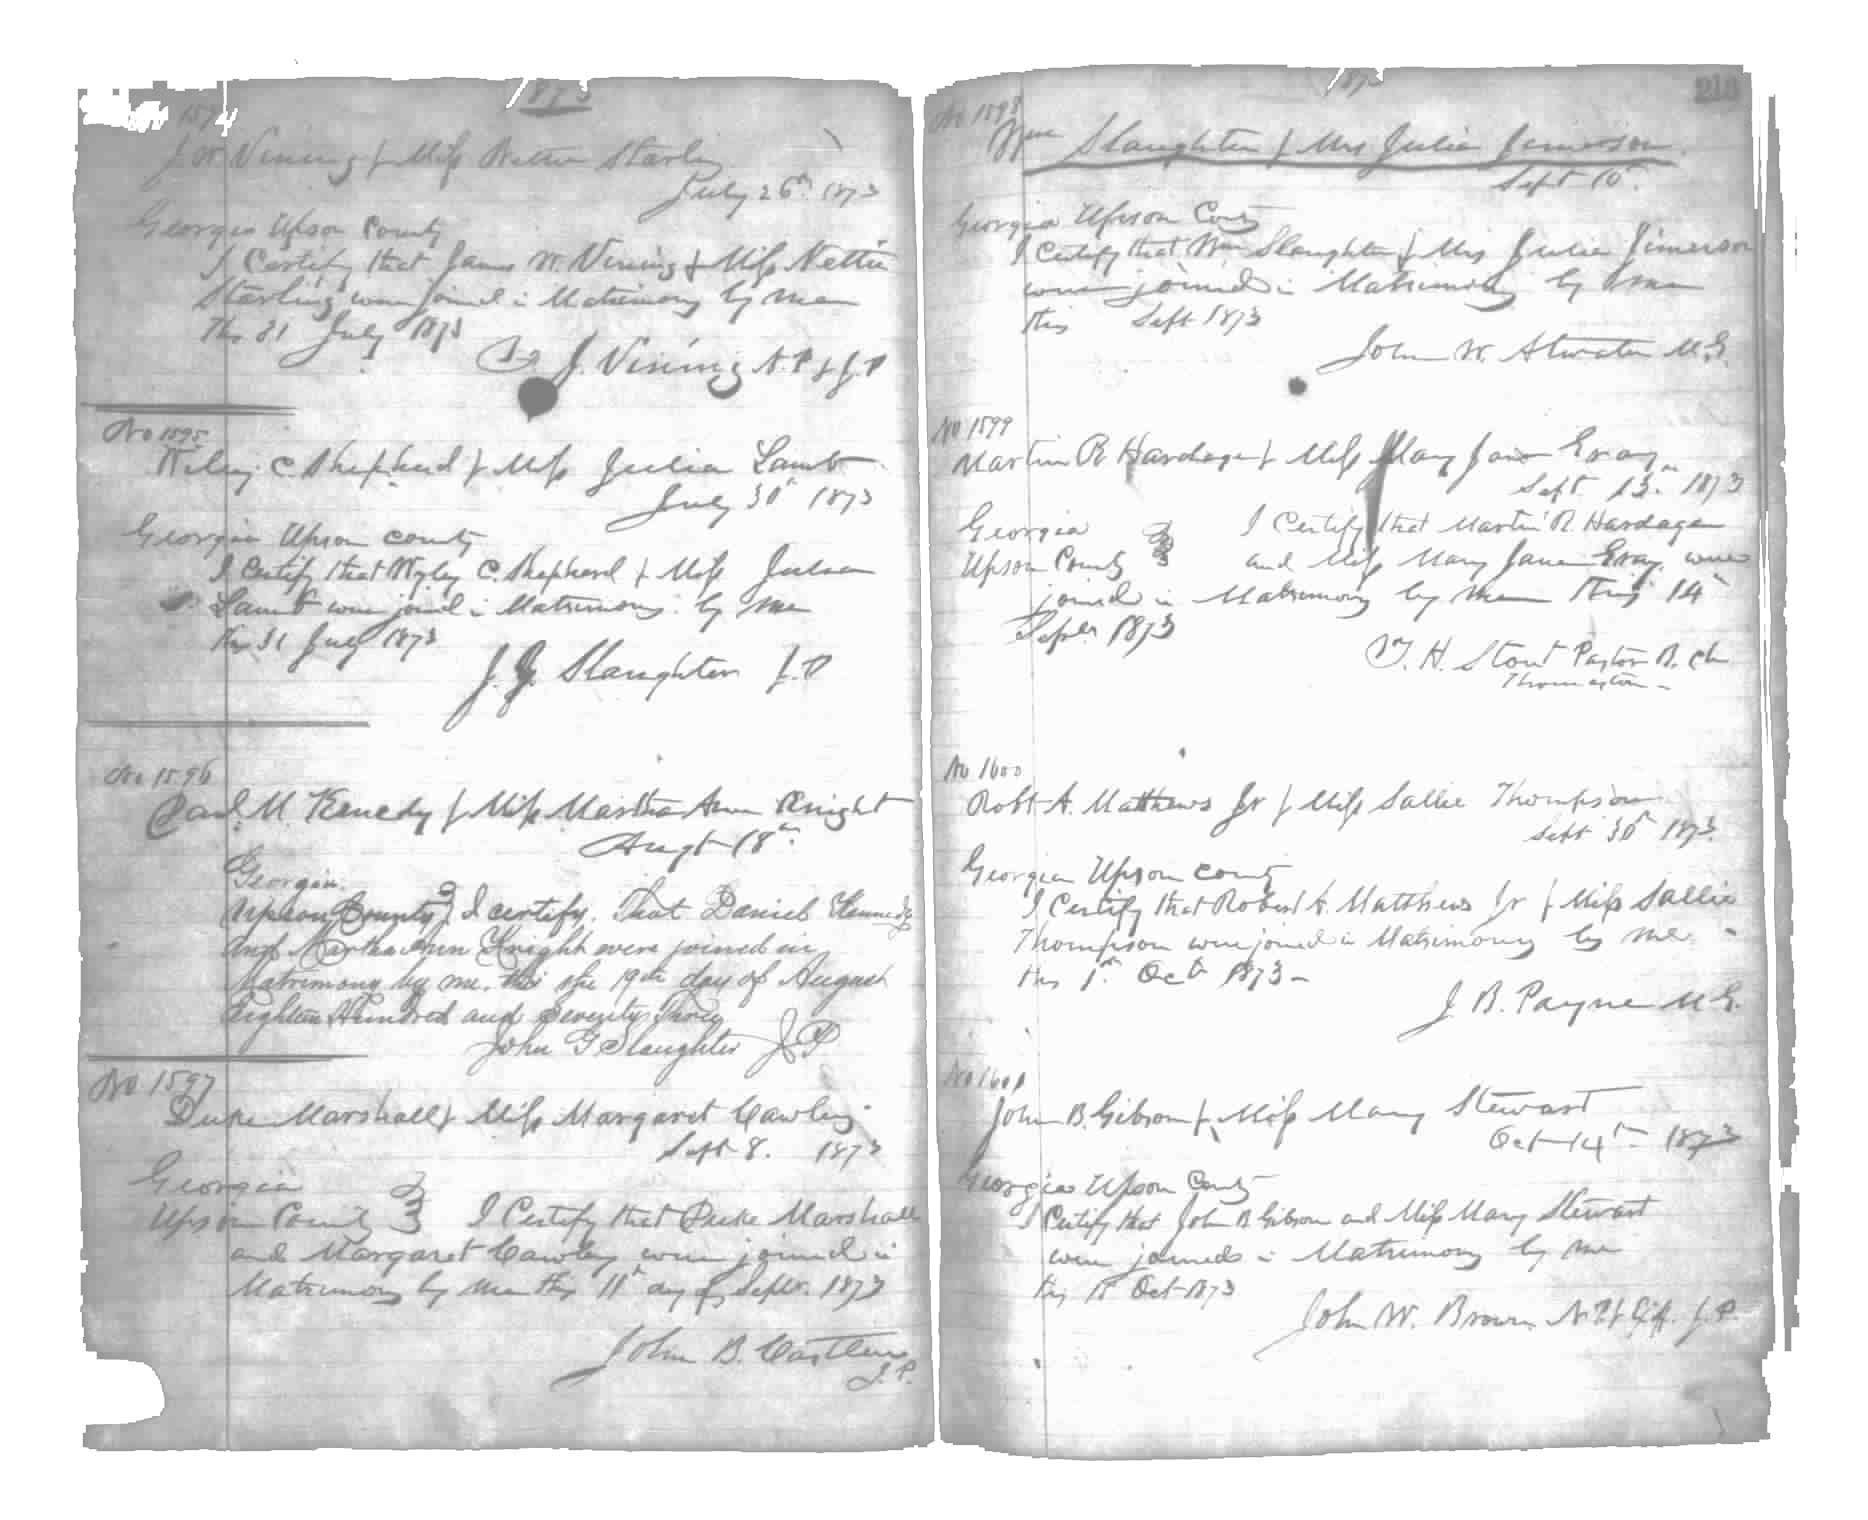 1873
1594
J. W. Vining & Miss Nettie Starling
July 26th 1873
Georgia Upson County
I Certify that James W. Vining & Miss Nettie
Starling were joined in Matrimony by me
this 31 July 1873
J. Vining N.P & J.P
No 1595
Wiley C. Shepherd & Miss Julia Lamb
July 30th 1873
Georgia Upson County
I Certify that Wyley C. Shepherd & Miss Julia
Lamb were joined in Matrimony by me
this 31 July 1873
J. G. Slaughter J.P
No 1596
Danl. M Kennedy & Miss Martha Ann Knight
Augt 18th
Georgia
Upson County } I certify. That Daniel Kennedy
and Martha Ann Knight were joined in
Matrimony by me. this the 19th day of August
Eighteen Hundred and Seventy Three
John G Slaughter JP
No 1597
Duke Marshall & Miss Margaret Cawley
Sept 8. 1873
Georgia
Upson County } I Certify that Duke Marshall
and Margaret Cawley were joined in
Matrimony by me this 11th day of Septr. 1873
John B. Castlen
J.P.
187
213
No 1598
Wm Slaughter & Mrs Julia Jimerson
Sept 10th
Georgia Upson County
I Certify that Wm Slaughter & Mrs Julia Jimerson
were joined in Matrimony by me
this Sept 1873
John W. Atwater M.G.
No 1599
Martin R Hardage & Miss Mary Jane Gray
Sept. 13th 1873
Georgia I Certify that Martin R. Hardage
Upson County } and Miss Mary Jane Gray were
joined in Matrimony by me this 14th
Septr 1873
T. H. Stout Pastor B. Ch
Thomaston
No 1600
Robt A. Matthews Jr & Miss Sallie Thompson
Sept 30th 1873.
Georgia Upson County
I Certify that Robert A. Matthews Jr & Miss Sallie
Thompson were joined in Matrimony by me
this 1st Oct 1873
J. B. Payne M G.
No 1601
John B. Gibson & Miss Mary Stewart
Oct 14th 1873
Georgia Upson County
I Certify that John B Gibson and Miss Mary Stewart
were joined in Matrimony by me
this Oct 1873
John W. Brown N.P & J.P.